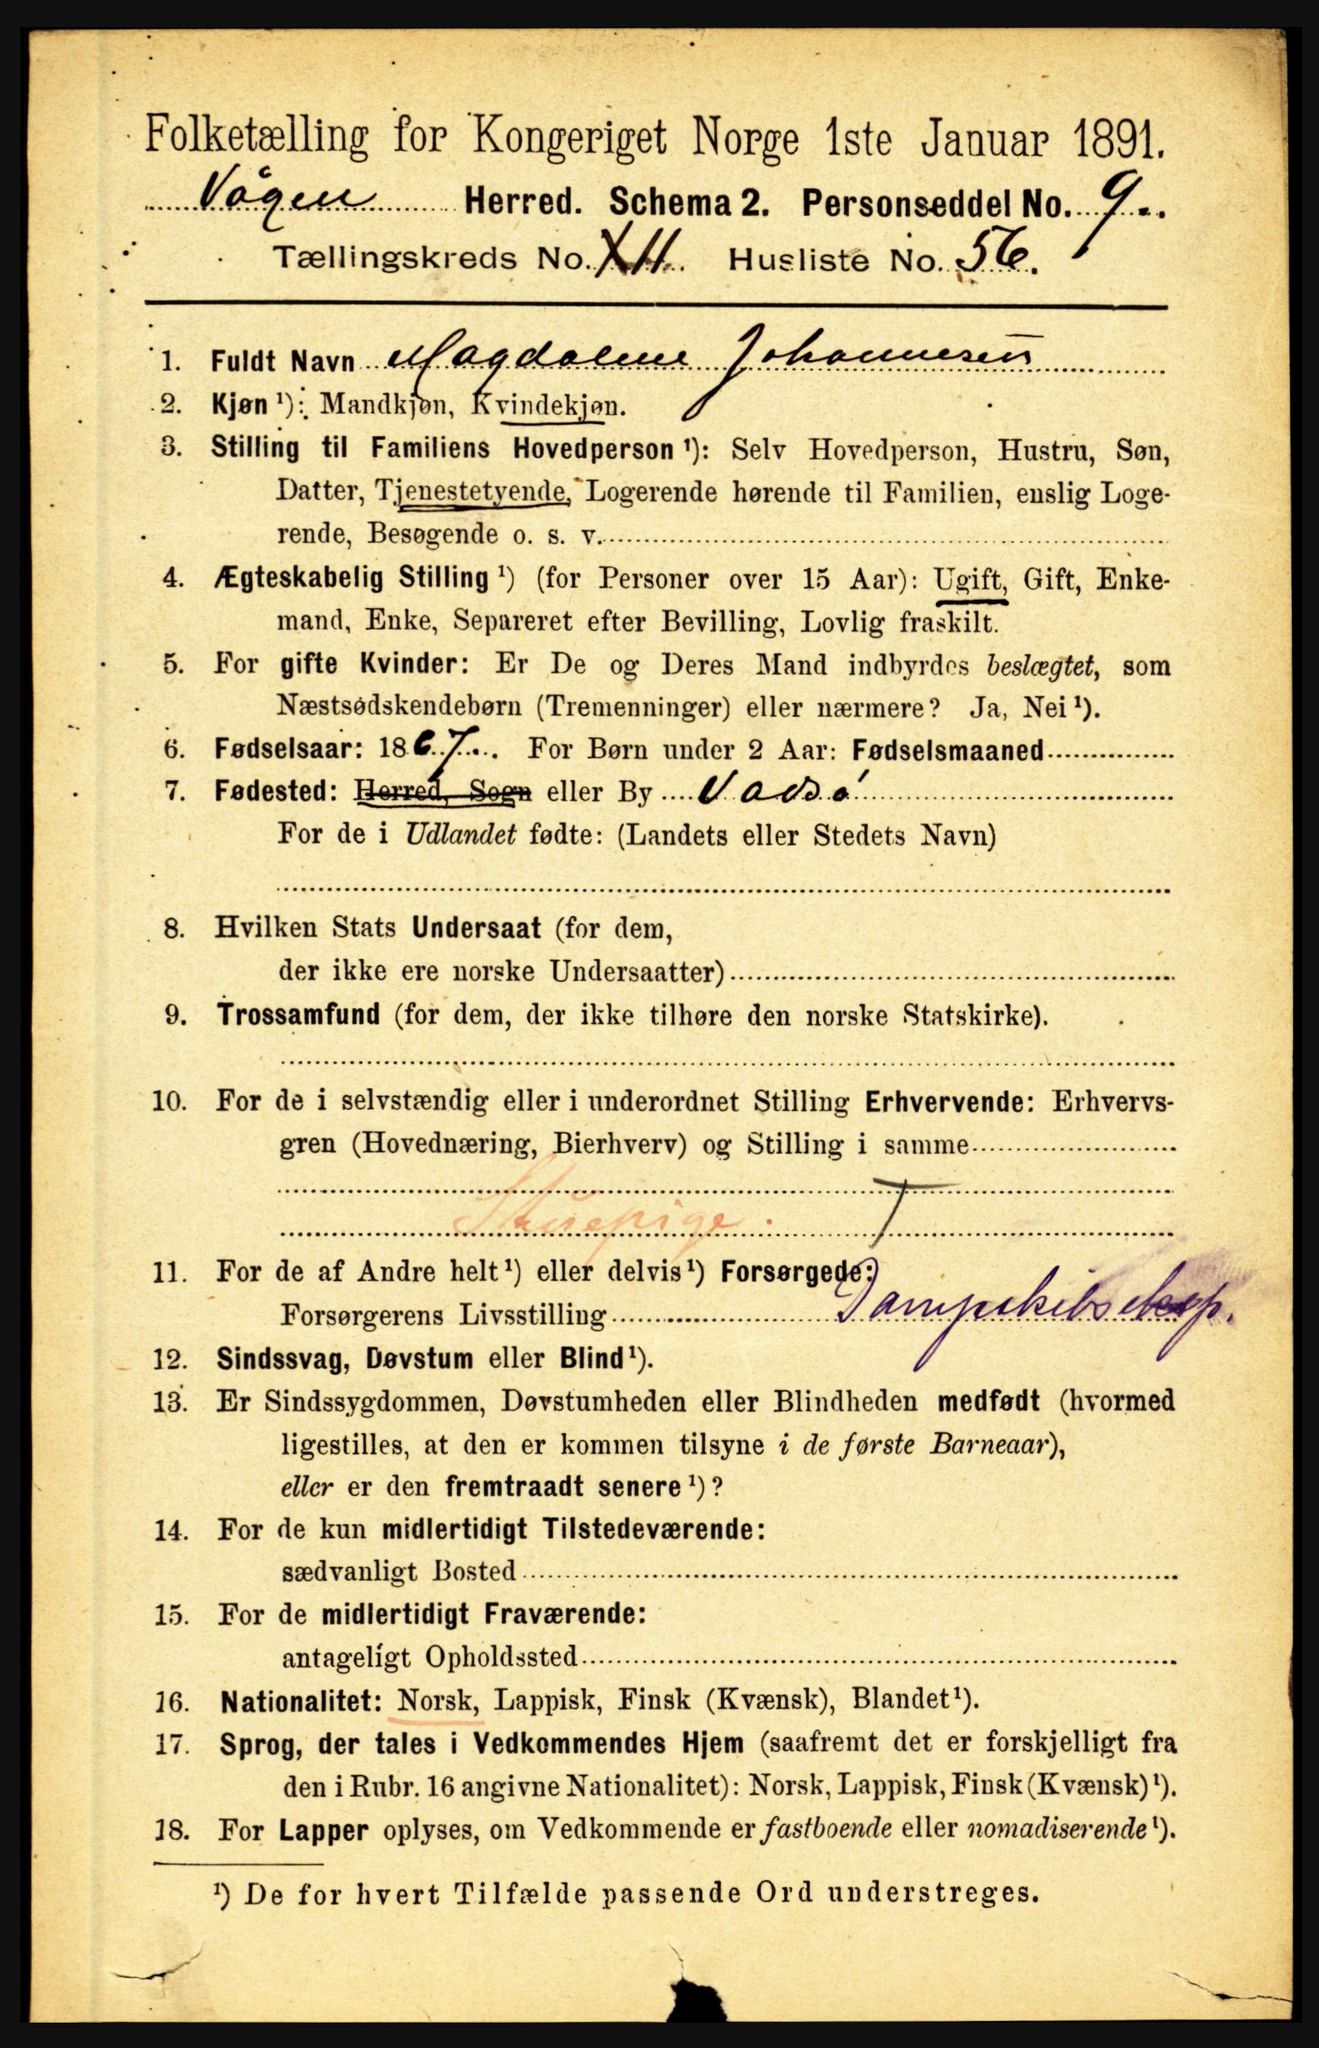 Folketælling for Kongeriget Norge 1ste Januar 1891.
Vågen Herred. Schema 2. Personseddel No. 9.
Tællingskreds No. XII. Husliste No. 56.
1. Fuldt Navn Magdalene Johannesen
2. Kjøn ¹): Mandkjøn, Kvindekjøn.
3. Stilling til Familiens Hovedperson ¹): Selv Hovedperson, Hustru, Søn,
Datter, Tjenestetyende, Logerende hørende til Familien, enslig Loge-
rende, Besøgende o. s. v.
4. Ægteskabelig Stilling ¹) (for Personer over 15 Aar): Ugift, Gift, Enke-
mand, Enke, Separeret efter Bevilling, Lovlig fraskilt.
5. For gifte Kvinder: Er De og Deres Mand indbyrdes beslægtet, som
Næstsødskendebørn (Tremenninger) eller nærmere? Ja, Nei ¹).
6. Fødselsaar: 1867. For Børn under 2 Aar: Fødselsmaaned
7. Fødested: Herred, Sogn eller By Vadsø
For de i Udlandet fødte: (Landets eller Stedets Navn)
8. Hvilken Stats Undersaat (for dem,
der ikke ere norske Undersaatter)
9. Trossamfund (for dem, der ikke tilhøre den norske Statskirke).
10. For de i selvstændig eller i underordnet Stilling Erhvervende: Erhvervs-
gren (Hovednæring, Bierhverv) og Stilling i samme
Stuepige. T
11. For de af Andre helt ¹) eller delvis ¹) Forsørgede:
Forsørgerens Livsstilling Dampskibsexp.
12. Sindssvag, Døvstum eller Blind ¹).
13. Er Sindssygdommen, Døvstumheden eller Blindheden medfødt (hvormed
ligestilles, at den er kommen tilsyne i de første Barneaar),
eller er den fremtraadt senere ¹)?
14. For de kun midlertidigt Tilstedeværende:
sædvanligt Bosted
15. For de midlertidigt Fraværende:
antageligt Opholdssted
16. Nationalitet: Norsk, Lappisk, Finsk (Kvænsk), Blandet ¹).
17. Sprog, der tales i Vedkommendes Hjem (saafremt det er forskjelligt fra
den i Rubr. 16 angivne Nationalitet): Norsk, Lappisk, Finsk (Kvænsk) ¹).
18. For Lapper oplyses, om Vedkommende er fastboende eller nomadiserende ¹).
¹) De for hvert Tilfælde passende Ord understreges.